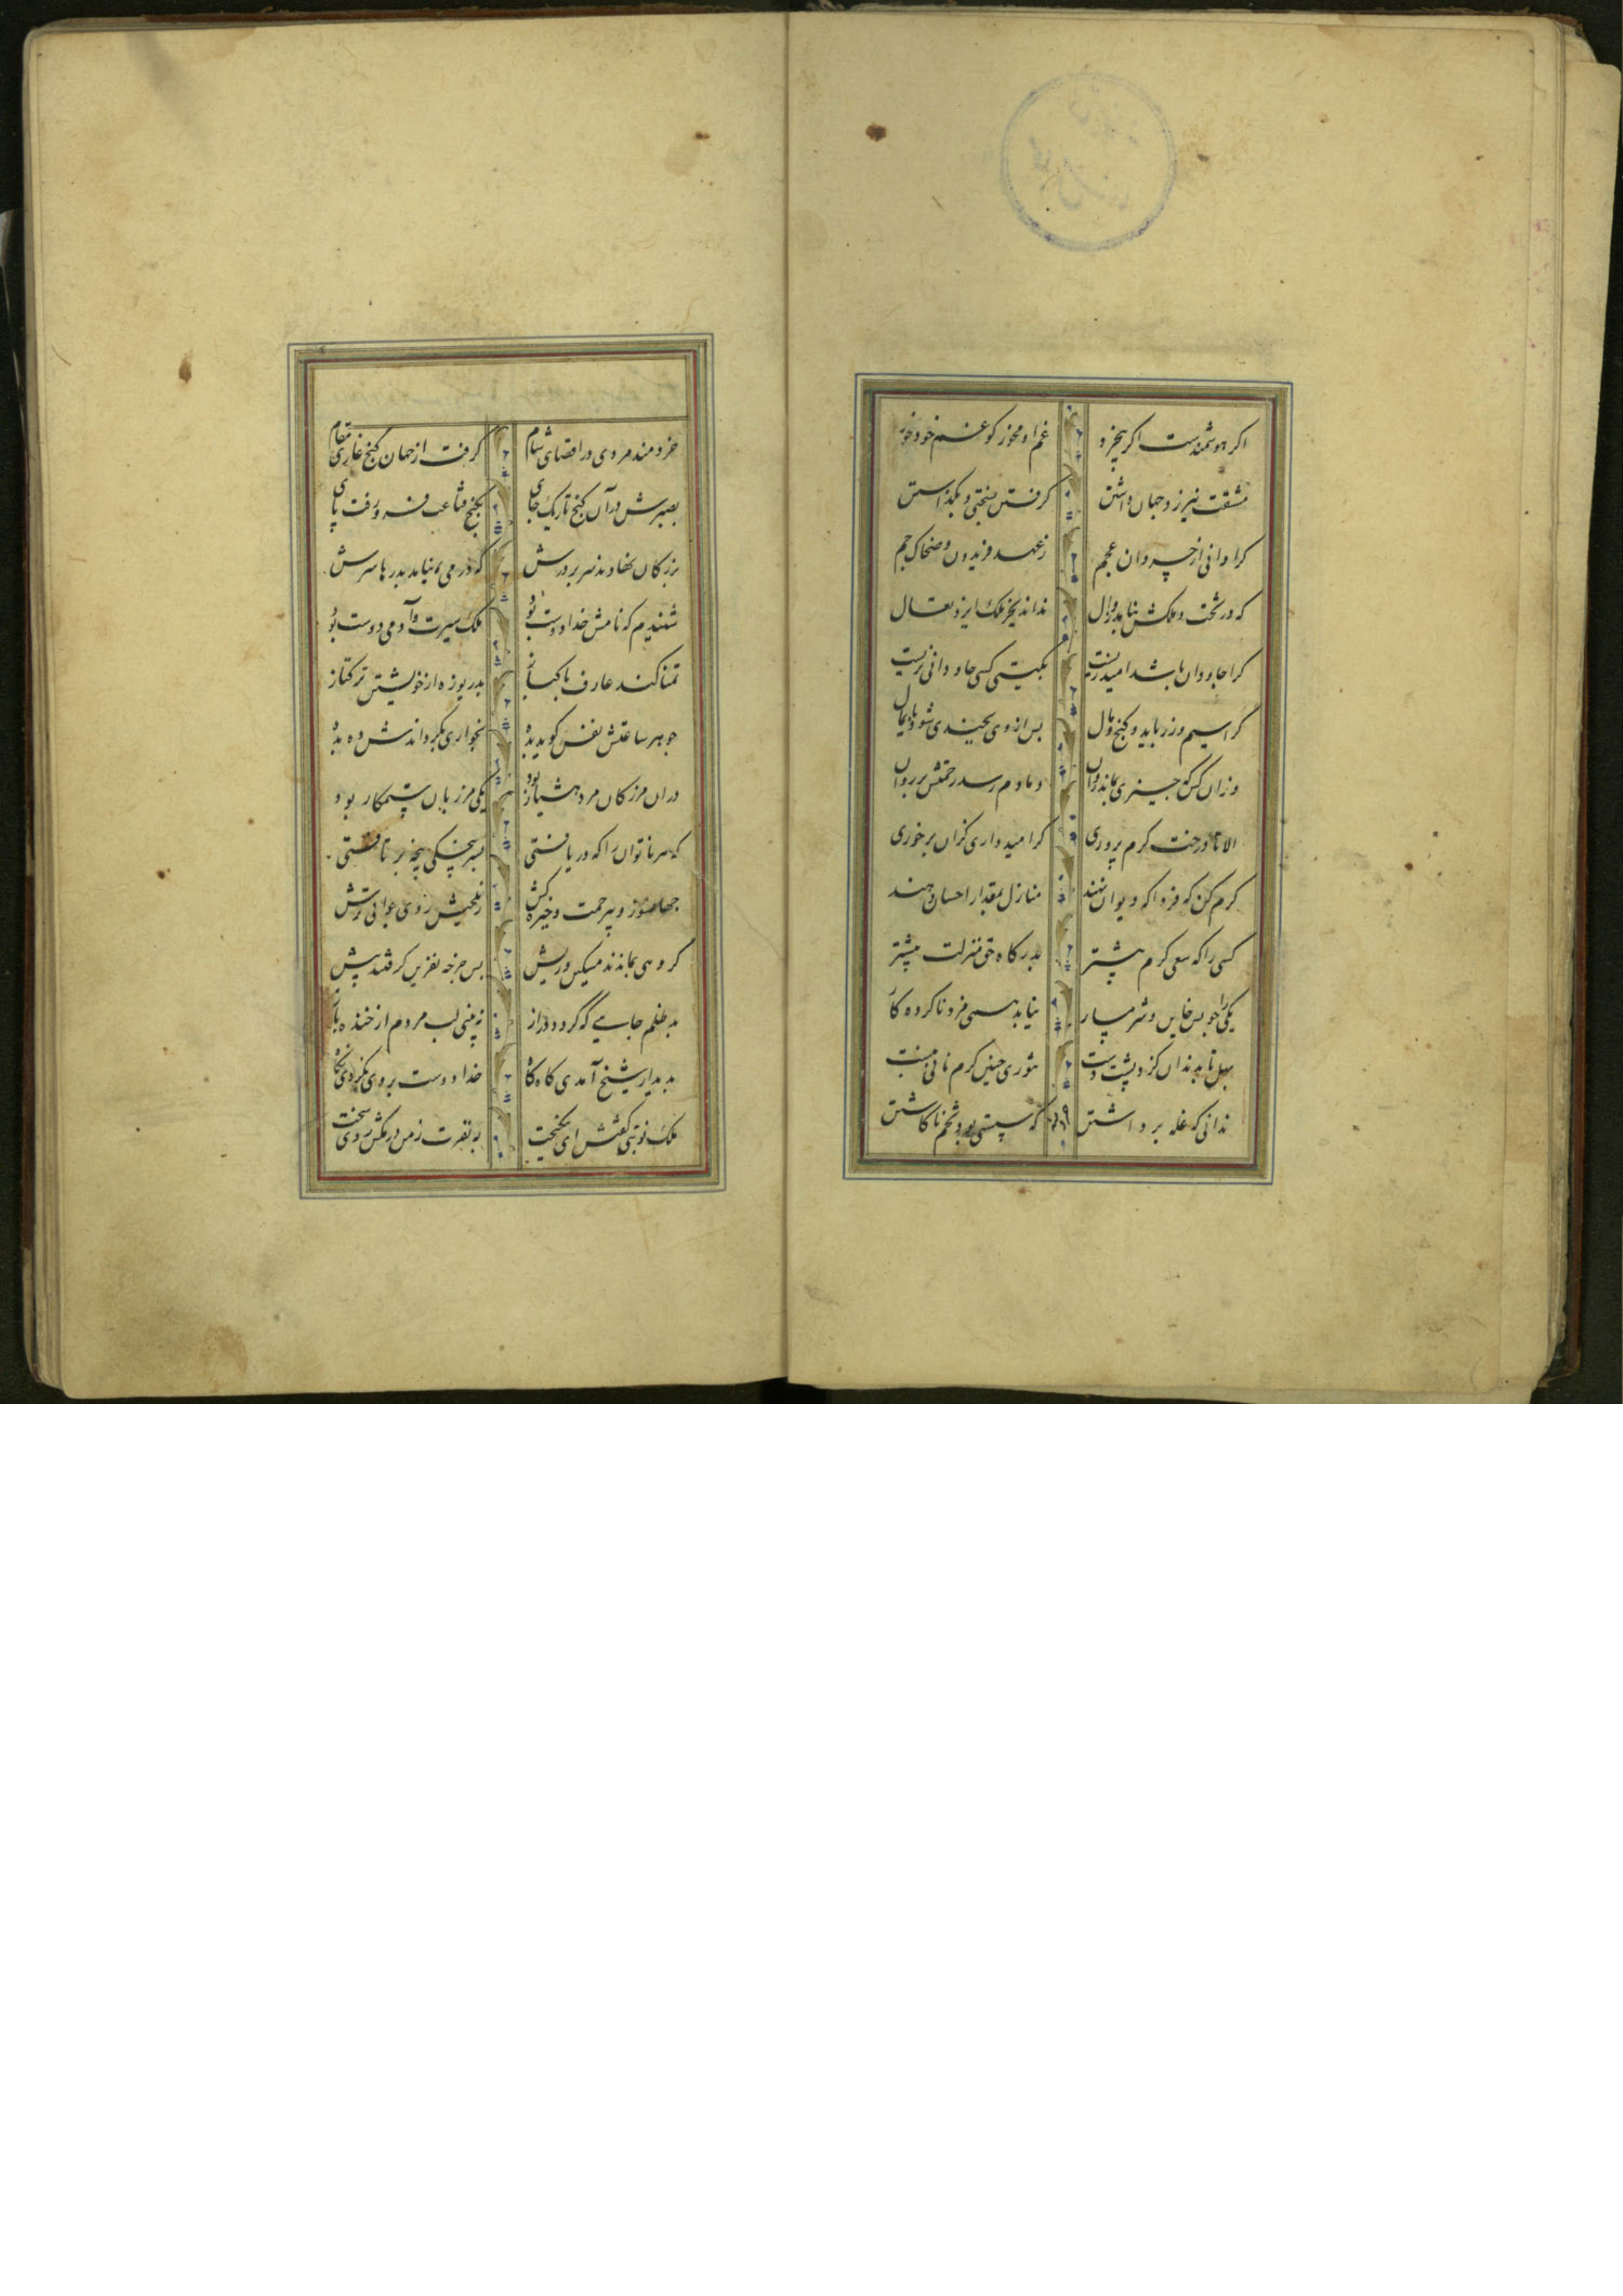 اکر هوشمندست اکر بیخرد غم او مخور کو غم خود خورد
مشقت نیرزد جهان داشتن کرفتن بسختی و بکذاشتن
کرا دانی از خسروان عجم ز عهد فریدون و ضحاک و جم
که در تخت و ملکش نیامد زوال نماند بجز ملک ایزد تعال
کرا جاودان باشد امید زیست بکیتی کسی جاودانی نزیست
کرا سیم و زر باید و کنج و مال بس از وی بچندی شود پایمال
وزان کس که چیزی بماند روان دمادم رسد رحمتش بر روان
الا تا درخت کرم پروری کر امیدواری کزان برخوری
کرم کن که فردا که دیوان نهند منازل بمقدار احسان نهند
کسی را که سعی کرم بیشتر بدرکاه حق منزلت بیشتر
یکی را جو بس خاین و شرمسار نیاید همی مزد ناکرده کار
بهل تا بدندان کزد پشت دست تنوری چنین کرم نانی نبست
ندانی که غله برداشتن که سستی بود تخم ناکاشتن
خردمند مردی در اقصای شام کرفت از جهان کنج غاری مقام
بصبرش در آن کنج تاریک جای بکنج قناعت فرو رفت پای
بزرکان نهادند سر بر درش که در می نیامد بدرها سرش
شنیدم که نامش خدادوست بود ملک سیرت و آدمی دوست بود
تمنا کند عارف پاکباز بدریوزه از خویشتن ترکتاز
جو هر ساعتش نفس کوید بده بخواری بکرداندش ده بده
در آن مرز کان مرد هشیار بود یکی مرزبان ستمکار بود
که هر ناتوان را که دریافتی بسرپنجکی پنجه بر تافتی
جهانسوز و بیرحمت و خیره کش ز تلخیش روی عوانی ترش
کروهی بماندند مسکین و ریش بس چرخه نفرین کرفتند پیش
بد ظلم جایی که کردد دراز نه بینی لب مردم از خنده باز
بدیدار شیخ آمدی کاه کاه خدادوست بر وی نکردی نکاه
ملک نوبتی کفتش ای نیکبخت به نفرت ز من در مکش روی سخت